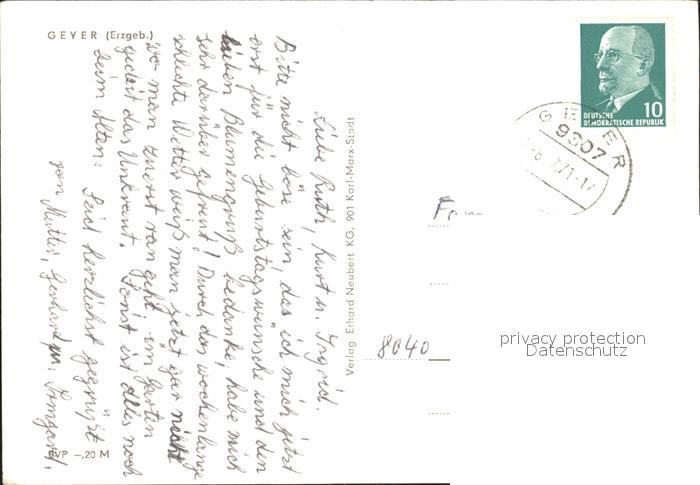 GEYER (Erzgeb.)
Liebe Ruth, Kurt u. Ingrid.
Bitte nicht böse sein, das ich mich jetzt
erst für die Geburtstagswünsche und den
lieben Blumengruß bedanke, habe mich
sehr darüber gefreut! Durch das wochenlange
schlechte Wetter weiß man jetzt gar nicht
wo man zuerst ran geht, im Garten
gedeit das Unkraut. Sonst ist alles noch
beim Alten. Seid herzlichst gegrüßt
von Mutter, Gerhard u. Irmgard.
EVP –,20 M
Verlag Erhard Neubert KG, 901 Karl-Marx-Stadt
DEUTSCHE
DEMOKRATISCHE REPUBLIK
10
GEYER
9307
8040
privacy protection
Datenschutz